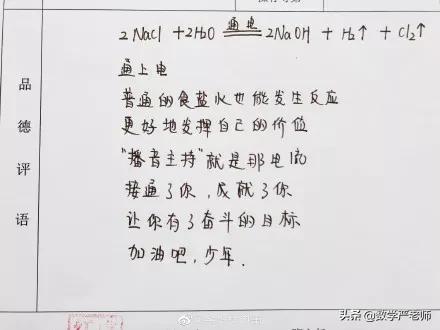 2NaCl + 2H2O 通电 2NaOH + H2↑ + Cl2↑
通上电
普通的食盐水也能发生反应
更好地发挥自己的价值
"播音主持"就是那电流
接通了你,成就了你
让你有了奋斗的目标
加油吧,少年.
品德评语
头条@数学严老师